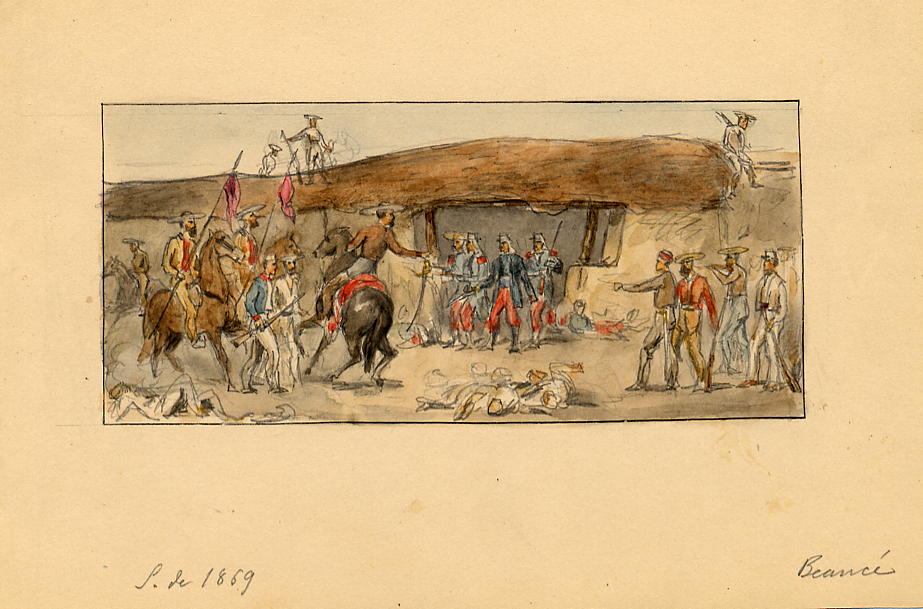 S. de 1869
Beaucé